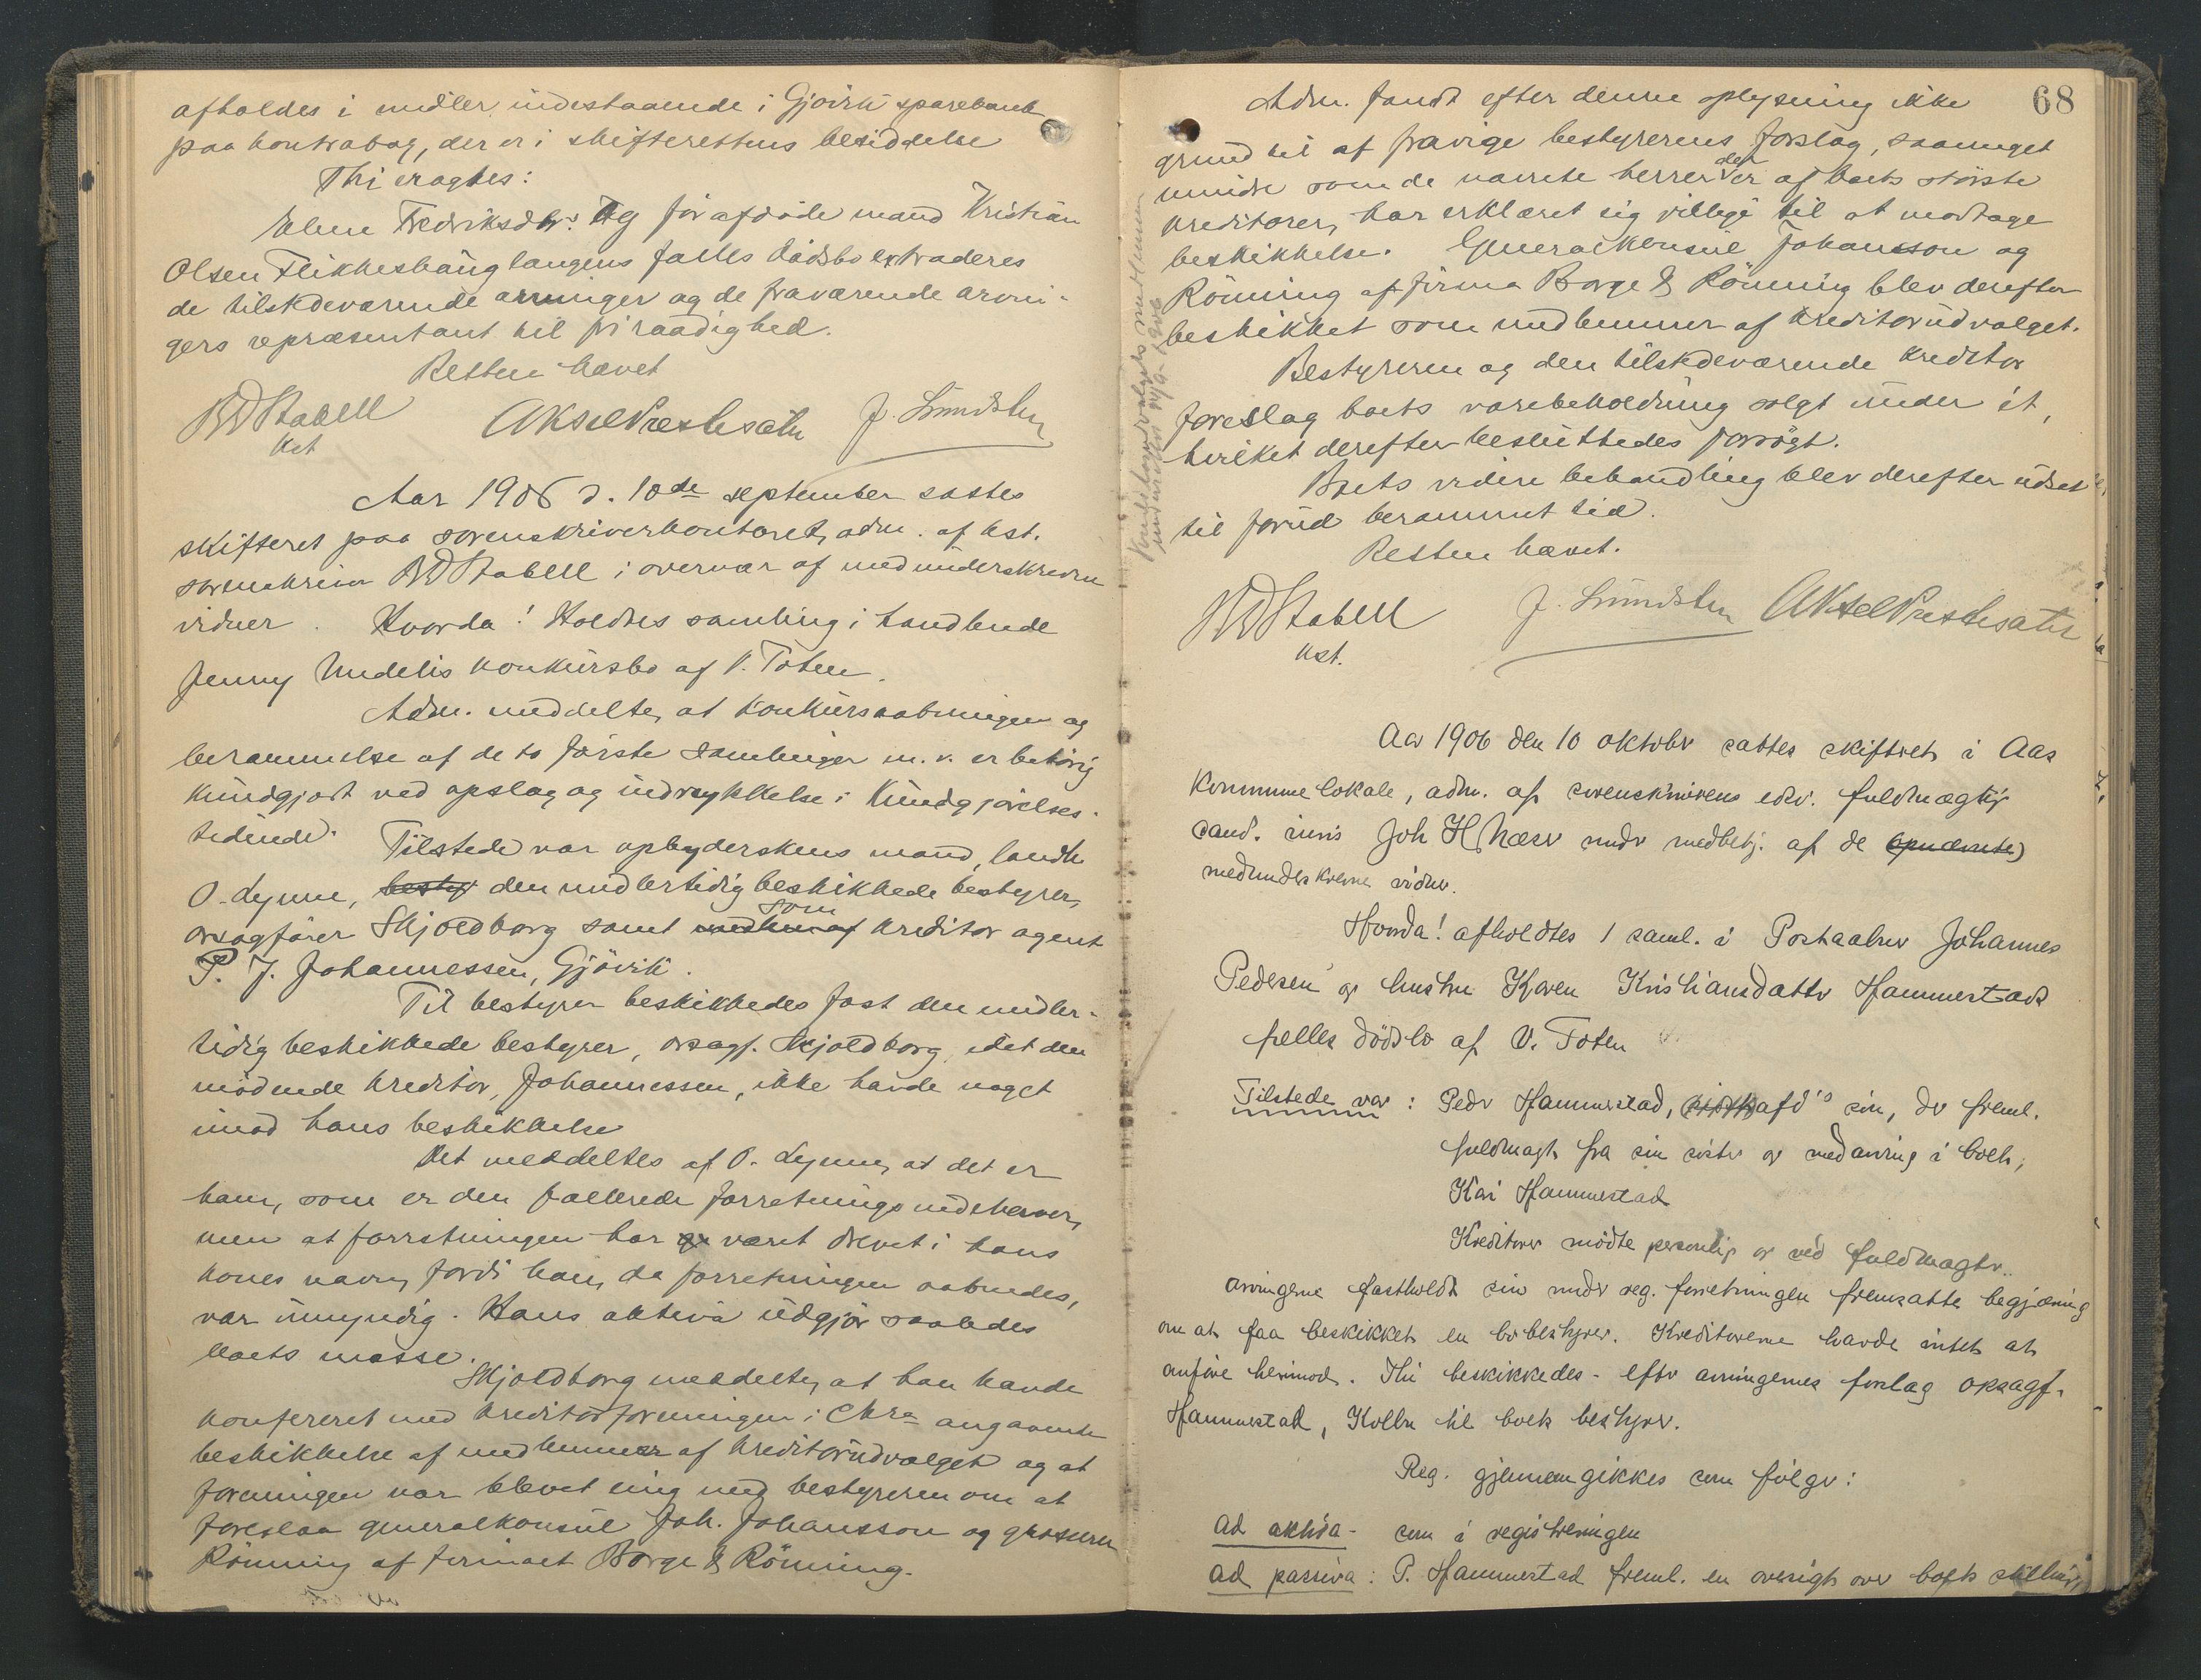 afholdes i midler indestaaende i Gjøvik sparebank
paa kontrabog, der er i skifterettens besiddelse
Thi eragtes:
Olsen Flikkeshaug langens fælles dødsbo extraderes
de tilstedeværende arvinger og de fraværende arvin-
gers repræsentant til fri raadighed.
Retten hævet
BDStabell Aksel Præstesæter J. Lundsten
kst
Aar 1906 d. 10de september sattes
skifteret paa sorenskriverkontoret, adm. af kst.
sorenskriver BDStabell i overvær af medunderskrevne
vidner. Hvorda! Holdtes samling i handlende
Jenny Undelis konkursbo af V. Toten.
Adm. meddelte, at konkursaabningen og
berammelse af de to første samlinger m. v. er behørig
kundgjort ved opslag og indrykkelse i Kundgjørelses-
tidende. Tilstede var opbyderskens mand, landh
O. Lynne, besty den midlertidig beskikkede bestyrer,
ovsagfører Skjoldborg samt som kreditor agent
P. J. Johannessen, Gjøvik.
Til bestyrer beskikkedes fast den midler-
tidig beskikkede bestyrer, ovsagf. Skjoldborg, idet den
mødende kreditor, Johannessen, ikke havde noget
imod hans beskikkelse
Det meddeltes af O. Lynne, at det er
ham, som er den fallerede forretnings indehaver,
men at forretningen har været drevet i hans
kones navn, fordi han, da forretningen aabnedes,
var umyndig. Hans aktiva udgjør saaledes
boets masse.
Skjoldborg meddelte, at han havde
konfereret med kreditorforeningen i Chra angaaende
beskikkelse af medlemmer af kreditorudvalget og at
foreningen var blevet enig med bestyreren om at
foreslaa generalkonsul Joh. Johansson og grosserer
Rønning af firmaet Borge & Rønning.
68
Adm. fandt efter denne oplysning ikke
grund til at fravige bestyrerens forslag, saameget
mindre som de nævnte herrer, der er af boets største
kreditorer, har erklæret sig villige til at modtage
beskikkelse. Generalkonsul Johansson og
Rønning af firma Borge & Rønning blev derefter
beskikket som medlemmer af kreditorudvalget.
Bestyreren og den tilstedeværende kreditor
foreslog boets varebeholdning solgt under ét,
hvilket derefter besluttedes forsøgt.
Boets videre behandling blev derefter udsat
til forud berammet tid.
Retten hævet.
BDStabell J. Lundsten Aksel Præstesæter
kst.
Aar 1906 den 10 oktober sattes skifteret i Aas
kommunelokale, adm. af sorenskriverens edsv. fuldmægtig
cand. juris Joh H Næser under medbetj. af de opnævnte
medunderskrevne vidner.
Hvorda! afholdtes 1 saml. i Postaabner Johannes
Pedersen og hustru Karen Kristiansdatter Hammerstad
fælles dødsbo af V. Toten
Tilstede var: Peder Hammerstad, afd's søn, der freml.
fuldmagt fra sin søster og medarving i boet,
Kari Hammerstad
Kreditorer mødte personlig og ved fuldmagter.
arvingerne fastholdt sin under reg. forretningen fremsatte begjæring
om at faa beskikket en bobestyrer. Kreditorerne havde intet at
anføre herimod. Thi beskikkedes - efter arvingernes forslag ovsagf.
Hammerstad, Kolbu til boets bestyrer.
Reg. gjennemgikkes som følger:
ad aktiva - som i registreringen
ad passiva: P. Hammerstad freml. en oversigt over boets stilling,